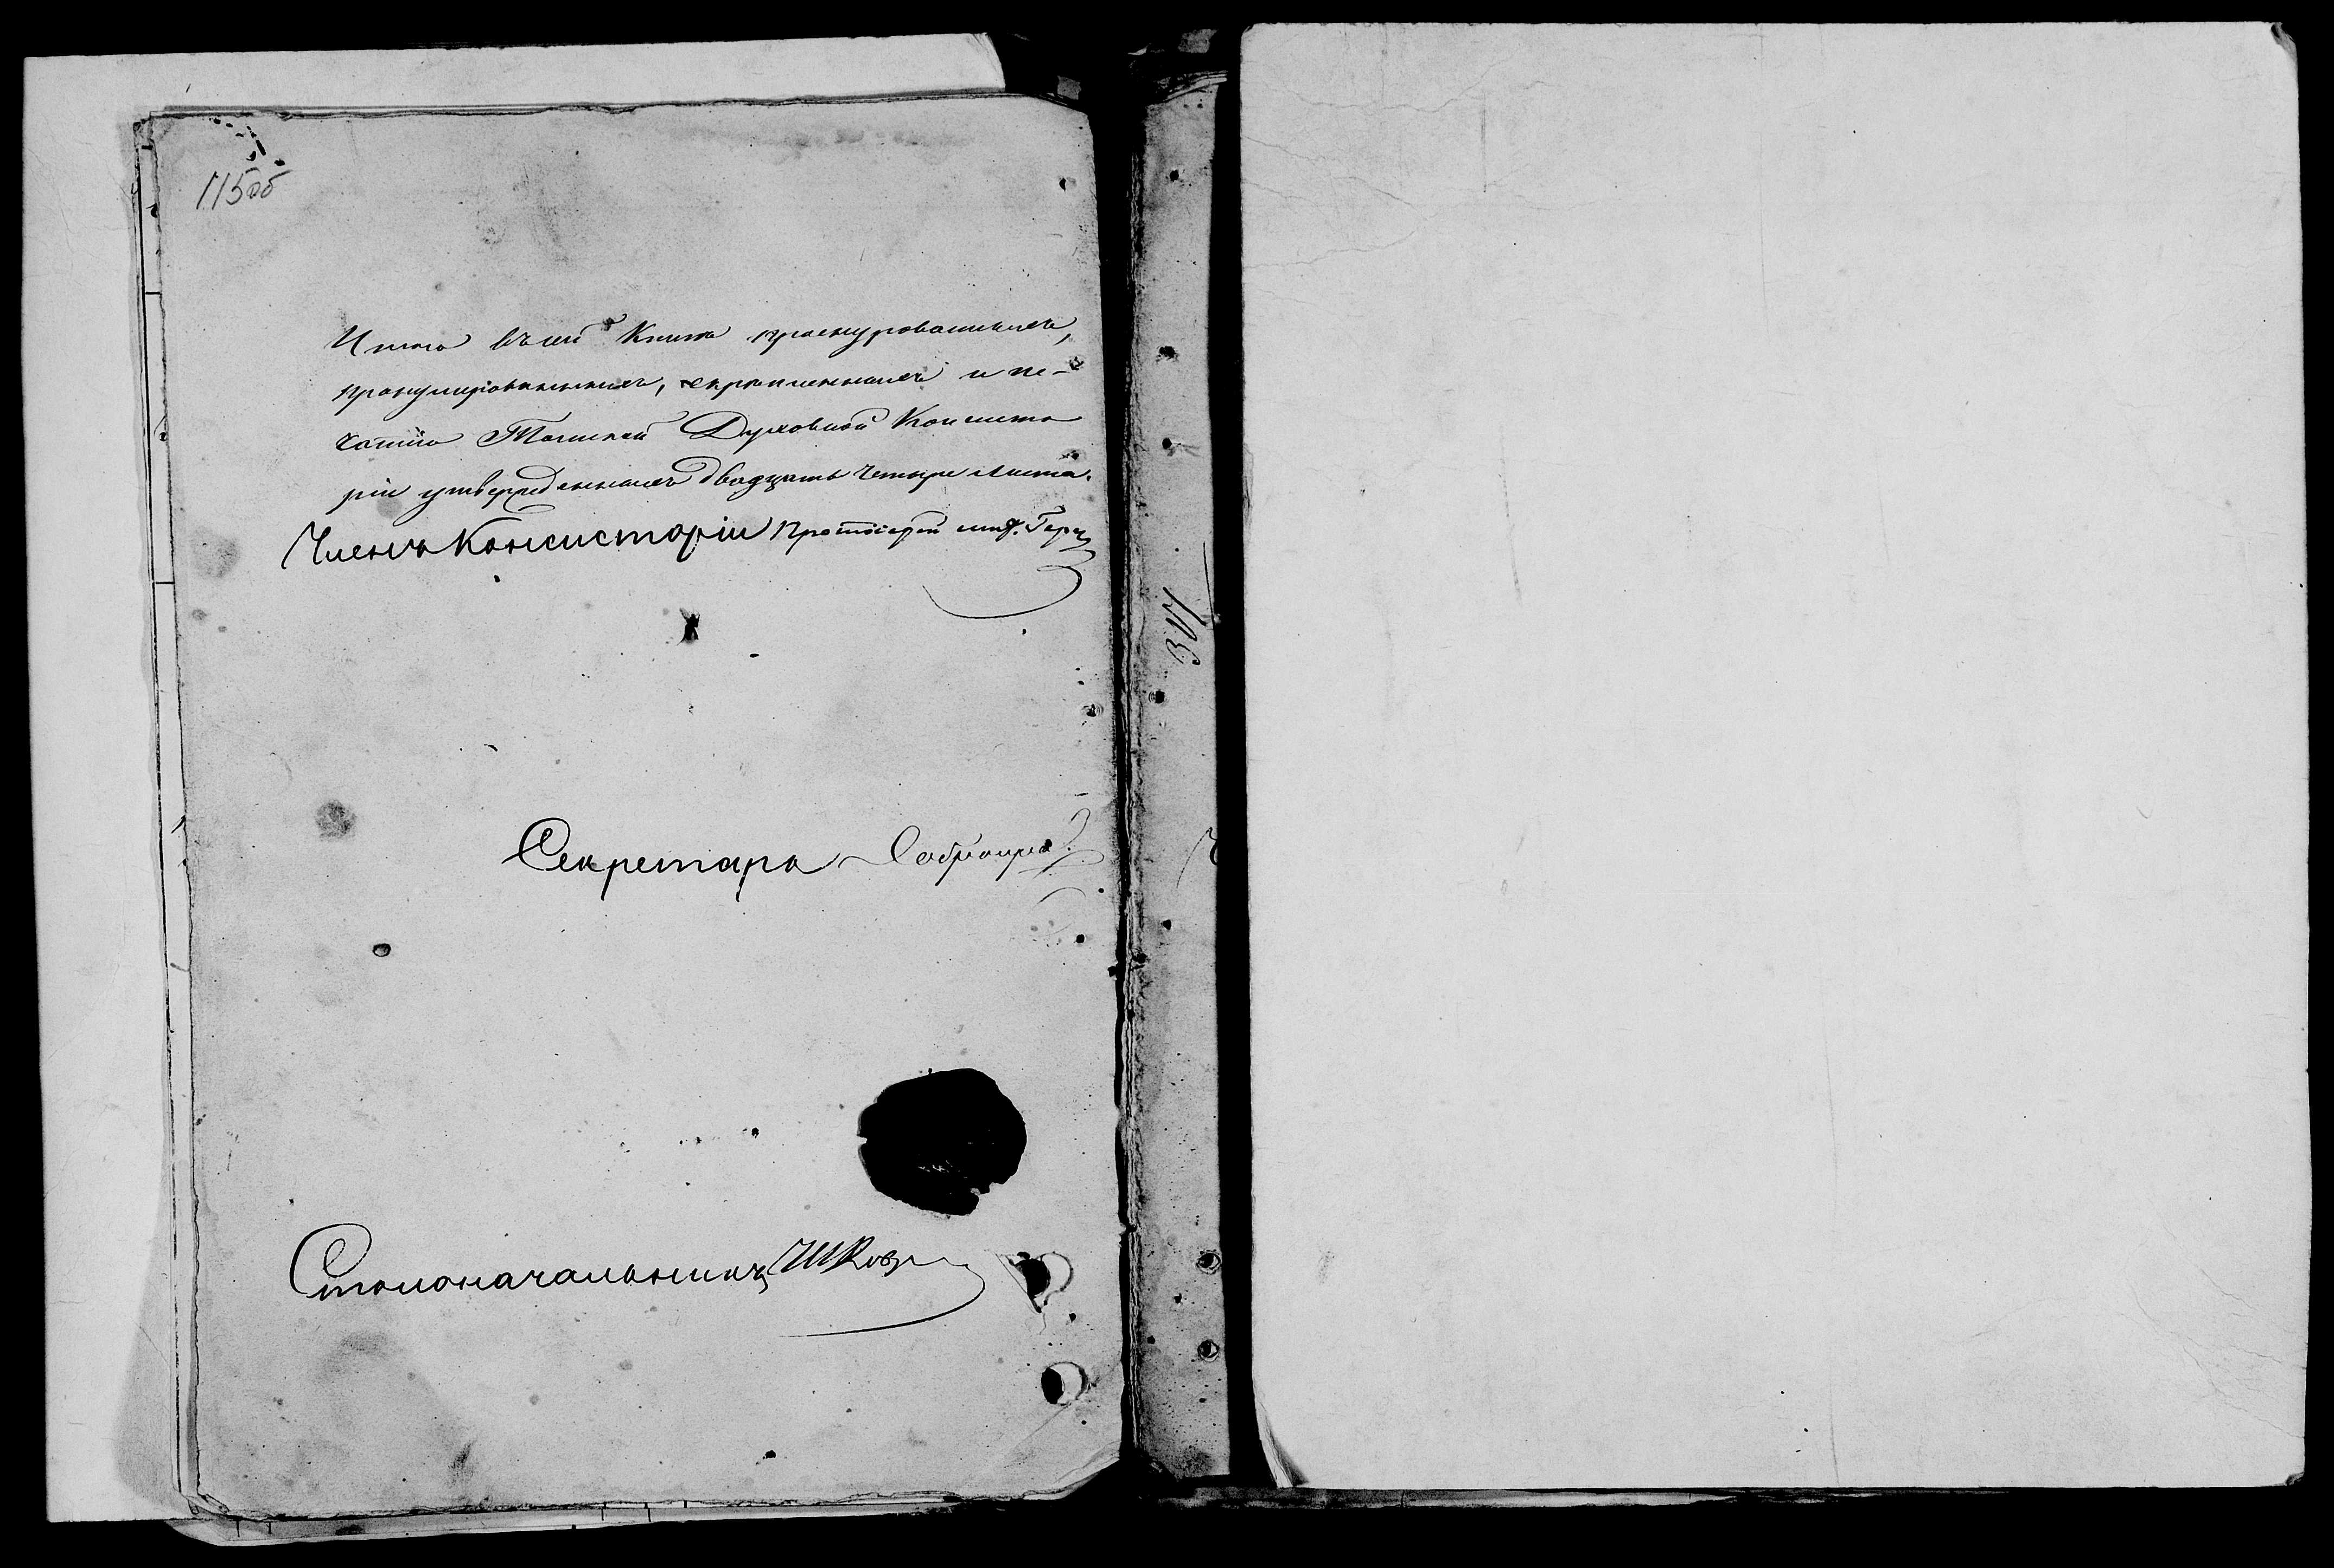 115об
Итого въ сей Книгѣ прошнурованныхъ,
пронумерованныхъ, скрѣпленныхъ и пе-
чатію Томской Духовной Консисто
ріи утвержденныхъ двадцать четыре листа.
Членъ Консисторіи Протоіерей
Секретарь
Столоначальникъ